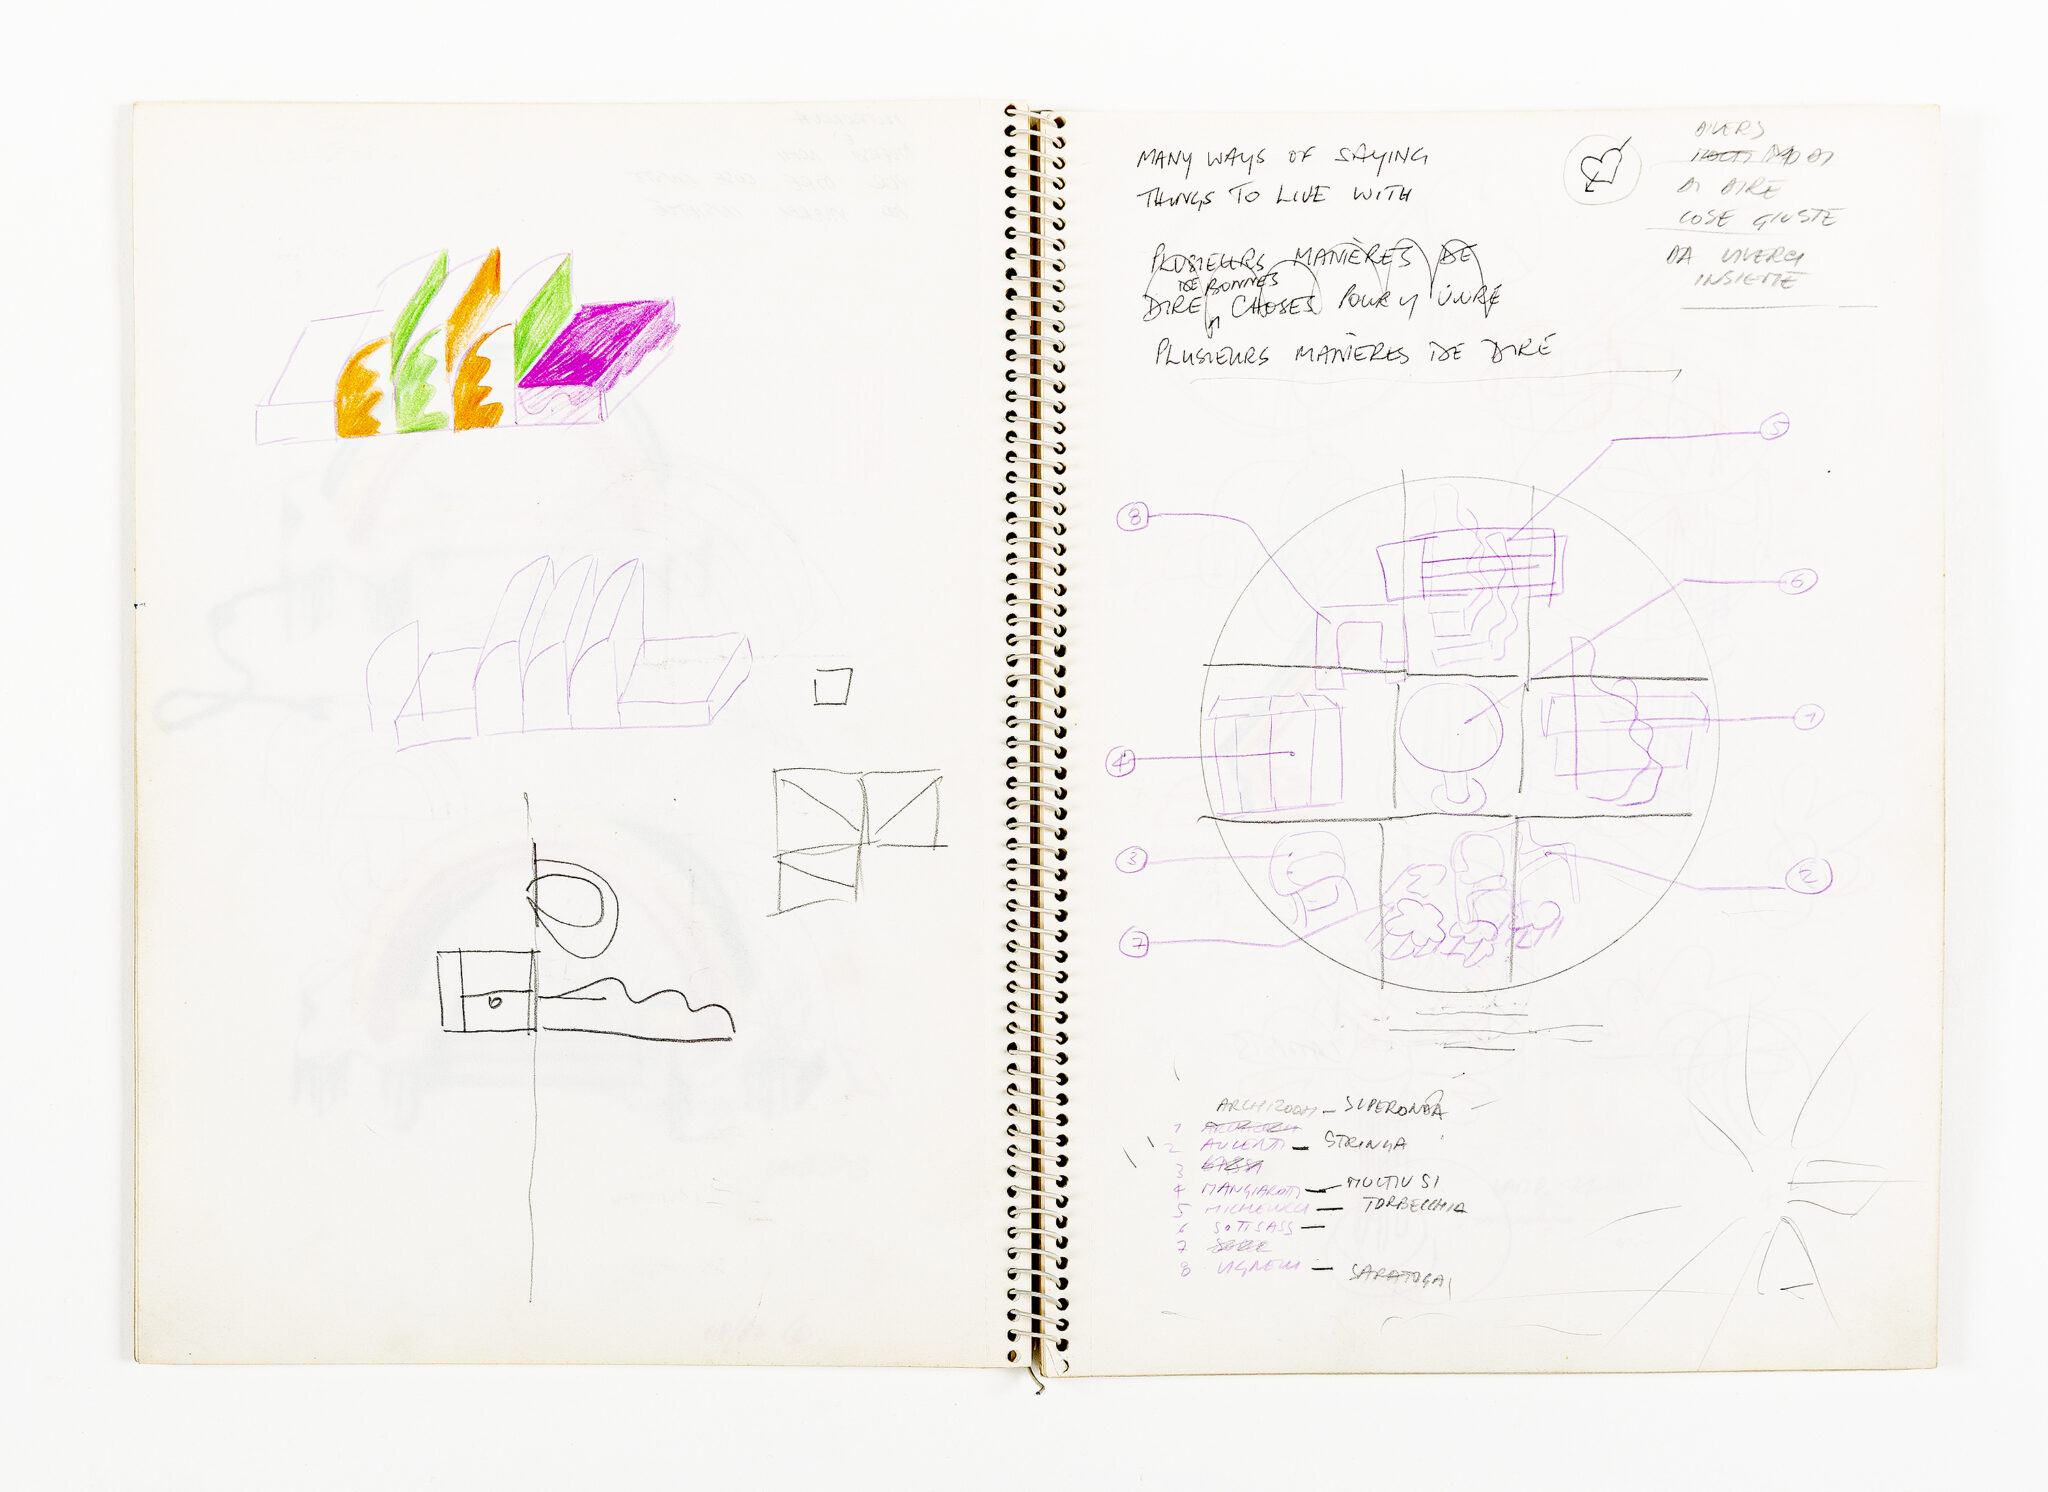 MANY WAYS OF SAYING
THINGS TO LIVE WITH
PLUSIEURS MANIÈRES DE
DE BONNES
DIRE CHOSES POUR Y VIVRE
PLUSIEURS MANIÈRES DE DIRE
DIVERS
MODI
DI DIRE
COSE GIUSTE
DA VIVERCI
INSIEME
5
8
6
4
1
3
2
7
ARCHIZOOM – SUPERONDA
1
2 AULENTI – STRINGA
3
4 MANGIAROTTI – MULTIUSI
5 – TORBECCHIA
6 SOTSASS –
7
8 VIGNELLI – SARATOGA